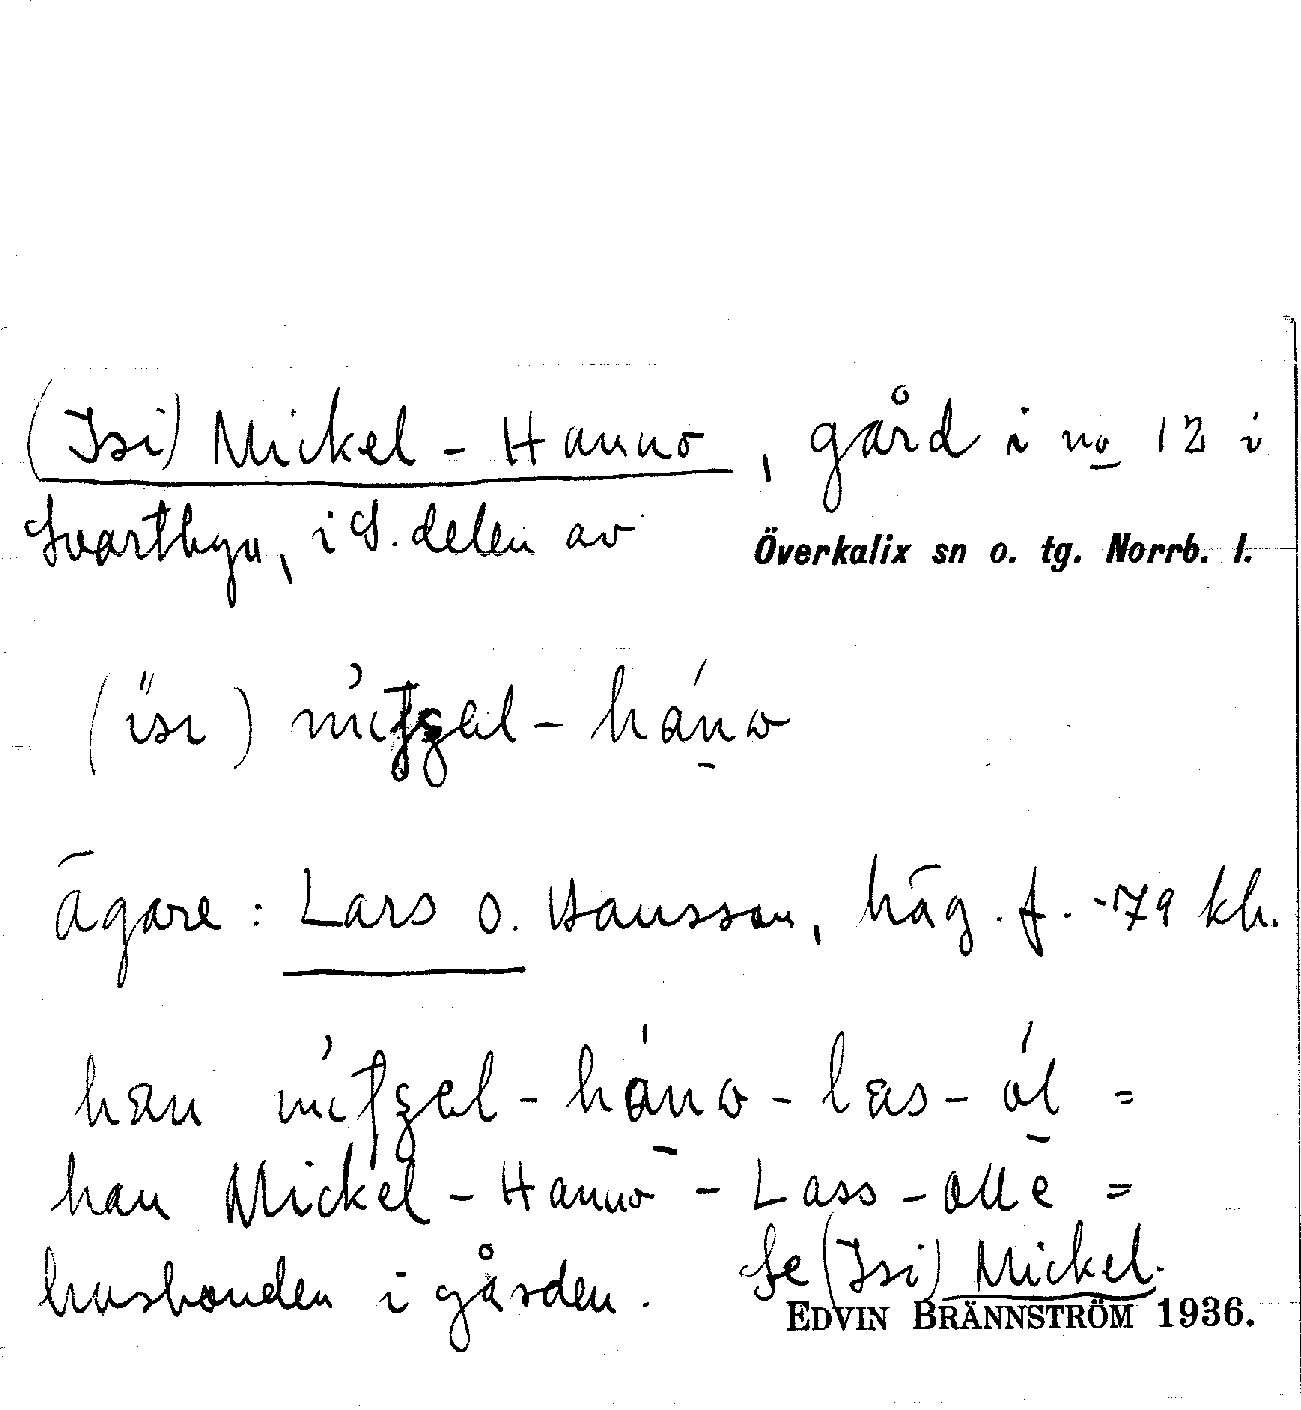 (Isi) Mickel-Hanno, gård i no 12 i
Svartbyn, i S. delen av
Överkalix sn o. tg. Norrb. l.
ägare: Lars O. Hansson, häg. f. -79 kh.
han Mickel-Hanno-Lass-Olle =
husbonden i gården. Se (Isi) Mickel.
EDVIN BRÄNNSTRÖM 1936.